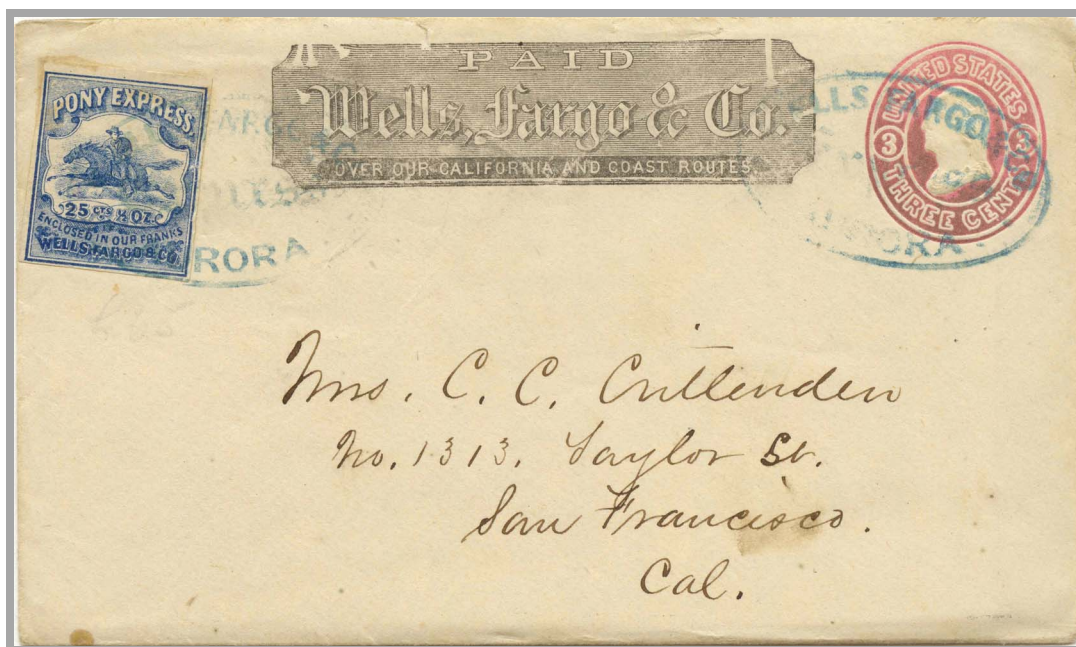 PONY EXPRESS.
25 CTS ½ OZ.
ENCLOSED IN OUR FRANKS
WELLS, FARGO & CO.
RORA
PAID
Wells, Fargo & Co.
OVER OUR CALIFORNIA AND COAST ROUTES.
UNITED STATES
3
THREE CENTS
ELLS, FARGO
Mrs. C. C. Crittenden
No. 1313. Taylor St.
San Francisco.
Cal.